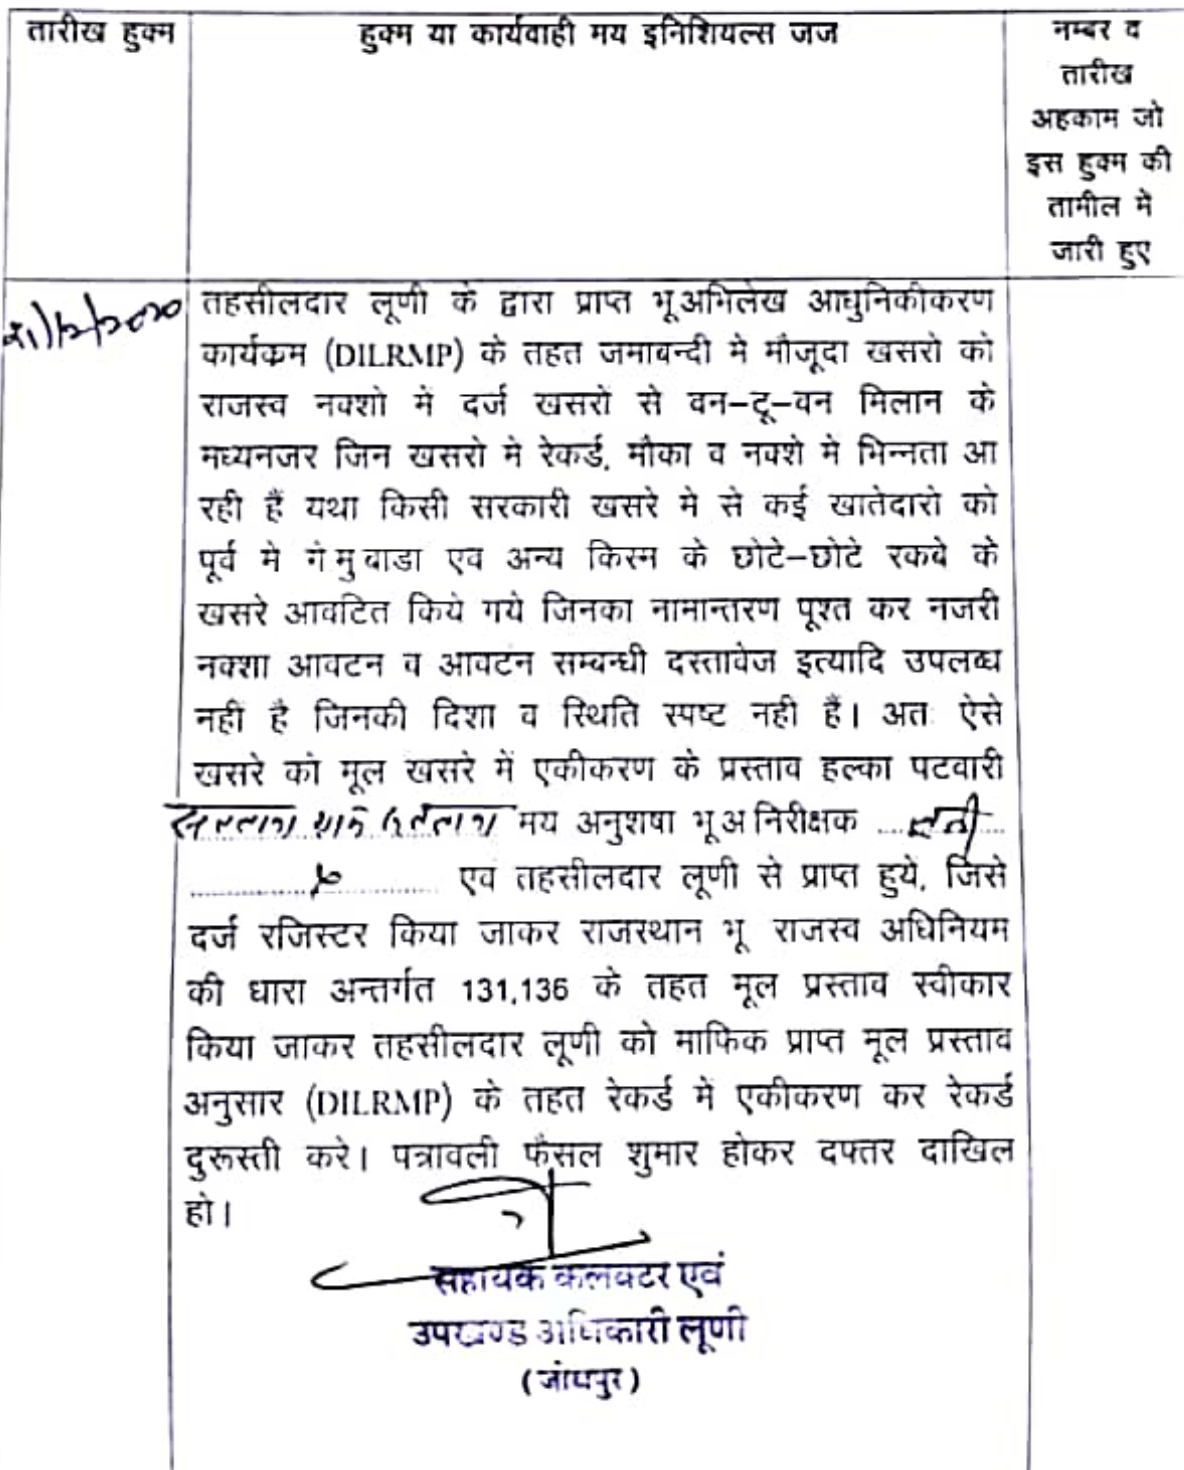 तारीख हुक्म
हुक्म या कार्यवाही मय इनिशियल्स जज
नम्बर व
तारीख
अहकाम जो
इस हुक्म की
तामील में
जारी हुए
तहसीलदार लूणी के द्वारा प्राप्त भू.अभिलेख आधुनिकीकरण
कार्यक्रम (DILRMP) के तहत जमाबन्दी मे मौजूदा खसरो को
राजस्व नक्शो में दर्ज खसरो से वन–टू–वन मिलान के
मध्यनजर जिन खसरो मे रेकर्ड, मौका व नक्शे मे भिन्नता आ
रही हैं यथा किसी सरकारी खसरे मे से कई खातेदारो को
पूर्व मे गे.मु.बाडा एव अन्य किस्म के छोटे–छोटे रकबे के
खसरे आवटित किये गये जिनका नामान्तरण पूश्त कर नजरी
नक्शा आवटन व आवटन सम्बन्धी दस्तावेज इत्यादि उपलब्ध
नहीं है जिनकी दिशा व स्थिति स्पष्ट नही हैं। अत ऐसे
खसरे को मूल खसरे में एकीकरण के प्रस्ताव हल्का पटवारी
मय अनुशषा भू.अ.निरीक्षक
एव तहसीलदार लूणी से प्राप्त हुये, जिसे
दर्ज रजिस्टर किया जाकर राजस्थान भू राजस्व अधिनियम
की धारा अन्तर्गत 131,136 के तहत मूल प्रस्ताव स्वीकार
किया जाकर तहसीलदार लूणी को माफिक प्राप्त मूल प्रस्ताव
अनुसार (DILRMP) के तहत रेकर्ड में एकीकरण कर रेकर्ड
दुरूस्ती करे। पत्रावली फैसल शुमार होकर दफ्तर दाखिल
हो।
सहायक कलक्टर एवं
उपखण्ड अधिकारी लूणी
(जोधपुर)